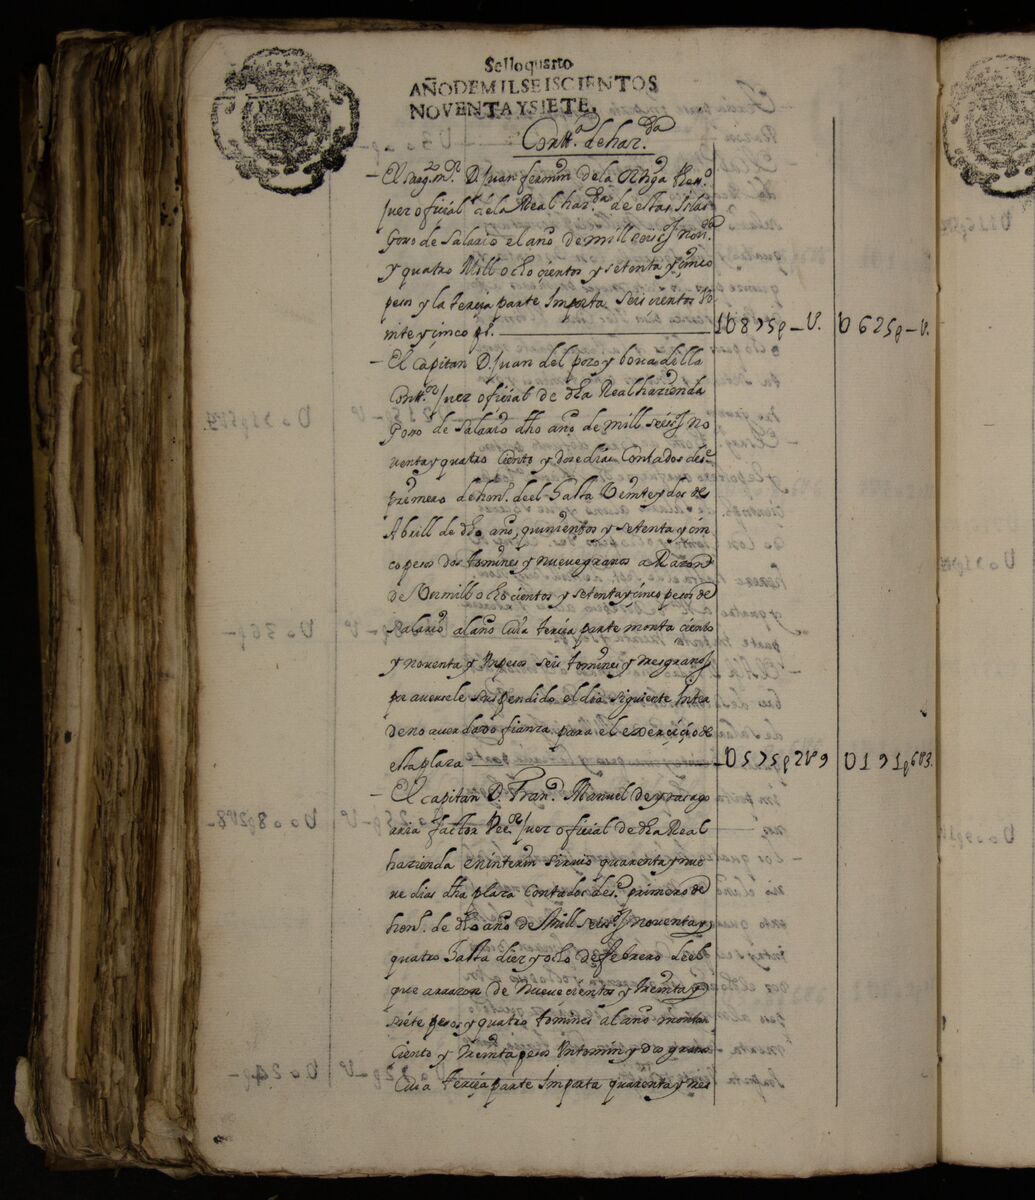 Sello quarto
AÑO DE MIL SEISCIENTOS
NOVENTA Y SIETE,
Contt.ª de haz.da
El D. Juan fermin de la
Juez oficial de la Real haz.da de estas Islas
Gozo de Salario el año de mill seisos non.ta
y quatro Mill ochocientos y setenta y çinco
pesos y la terçia parte Importa seis cientos Ve
inte y cinco ps. 1U875p-U. U625p-U.
El Capitan D. Juan del pozo y bouadilla
Contt.or Juez oficial de dha Real hazienda
Gozo de Salario dho año de mill seisos no
uenta y quatro Ciento y doze dias Contados desde
primero de hen.º de el hasta Veinte y dos de
Abrill de dho año, quinientos y setenta y çin
co pesos dos tomines y nueve granos a Razon
de Un mill ochocientos y setenta y cinco pesos de
Salario al año Cuia terçia parte monta ciento
y noventa y Un pesos seis tomines y tres granos
por averse le suspendido el dia siguiente
de no auer dado fianza para el exerçiçio de
esta plaza U575p2U9 U191p6U3.
El Capitan D. Fran.co Manuel de
factor Vee.or Juez oficial de dha Real
hazienda en interin siruio quarenta y nue
ve dias dha plaza Contados desde primero de
hen.º de dho año de Mill seisos noventa y
quatro hasta diez y ocho de febrero de el
que a rrazon de Nueve cientos y treinta y
siete pesos y quatro tomines al año montan
Ciento y Treinta pesos Un tomin y dos granos
Cuia terçia parte Importa quarenta y tres